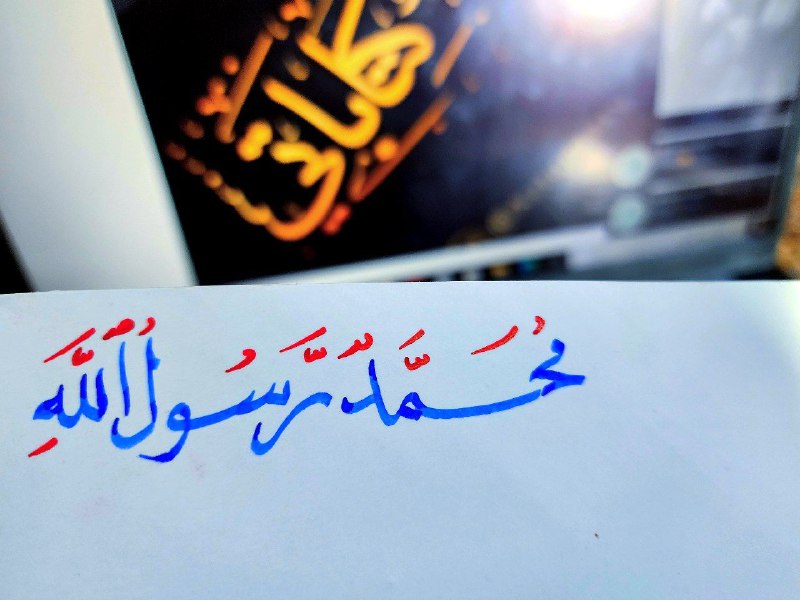 مُحَمَّدٌ رَّسُولُ ٱللَّهِ